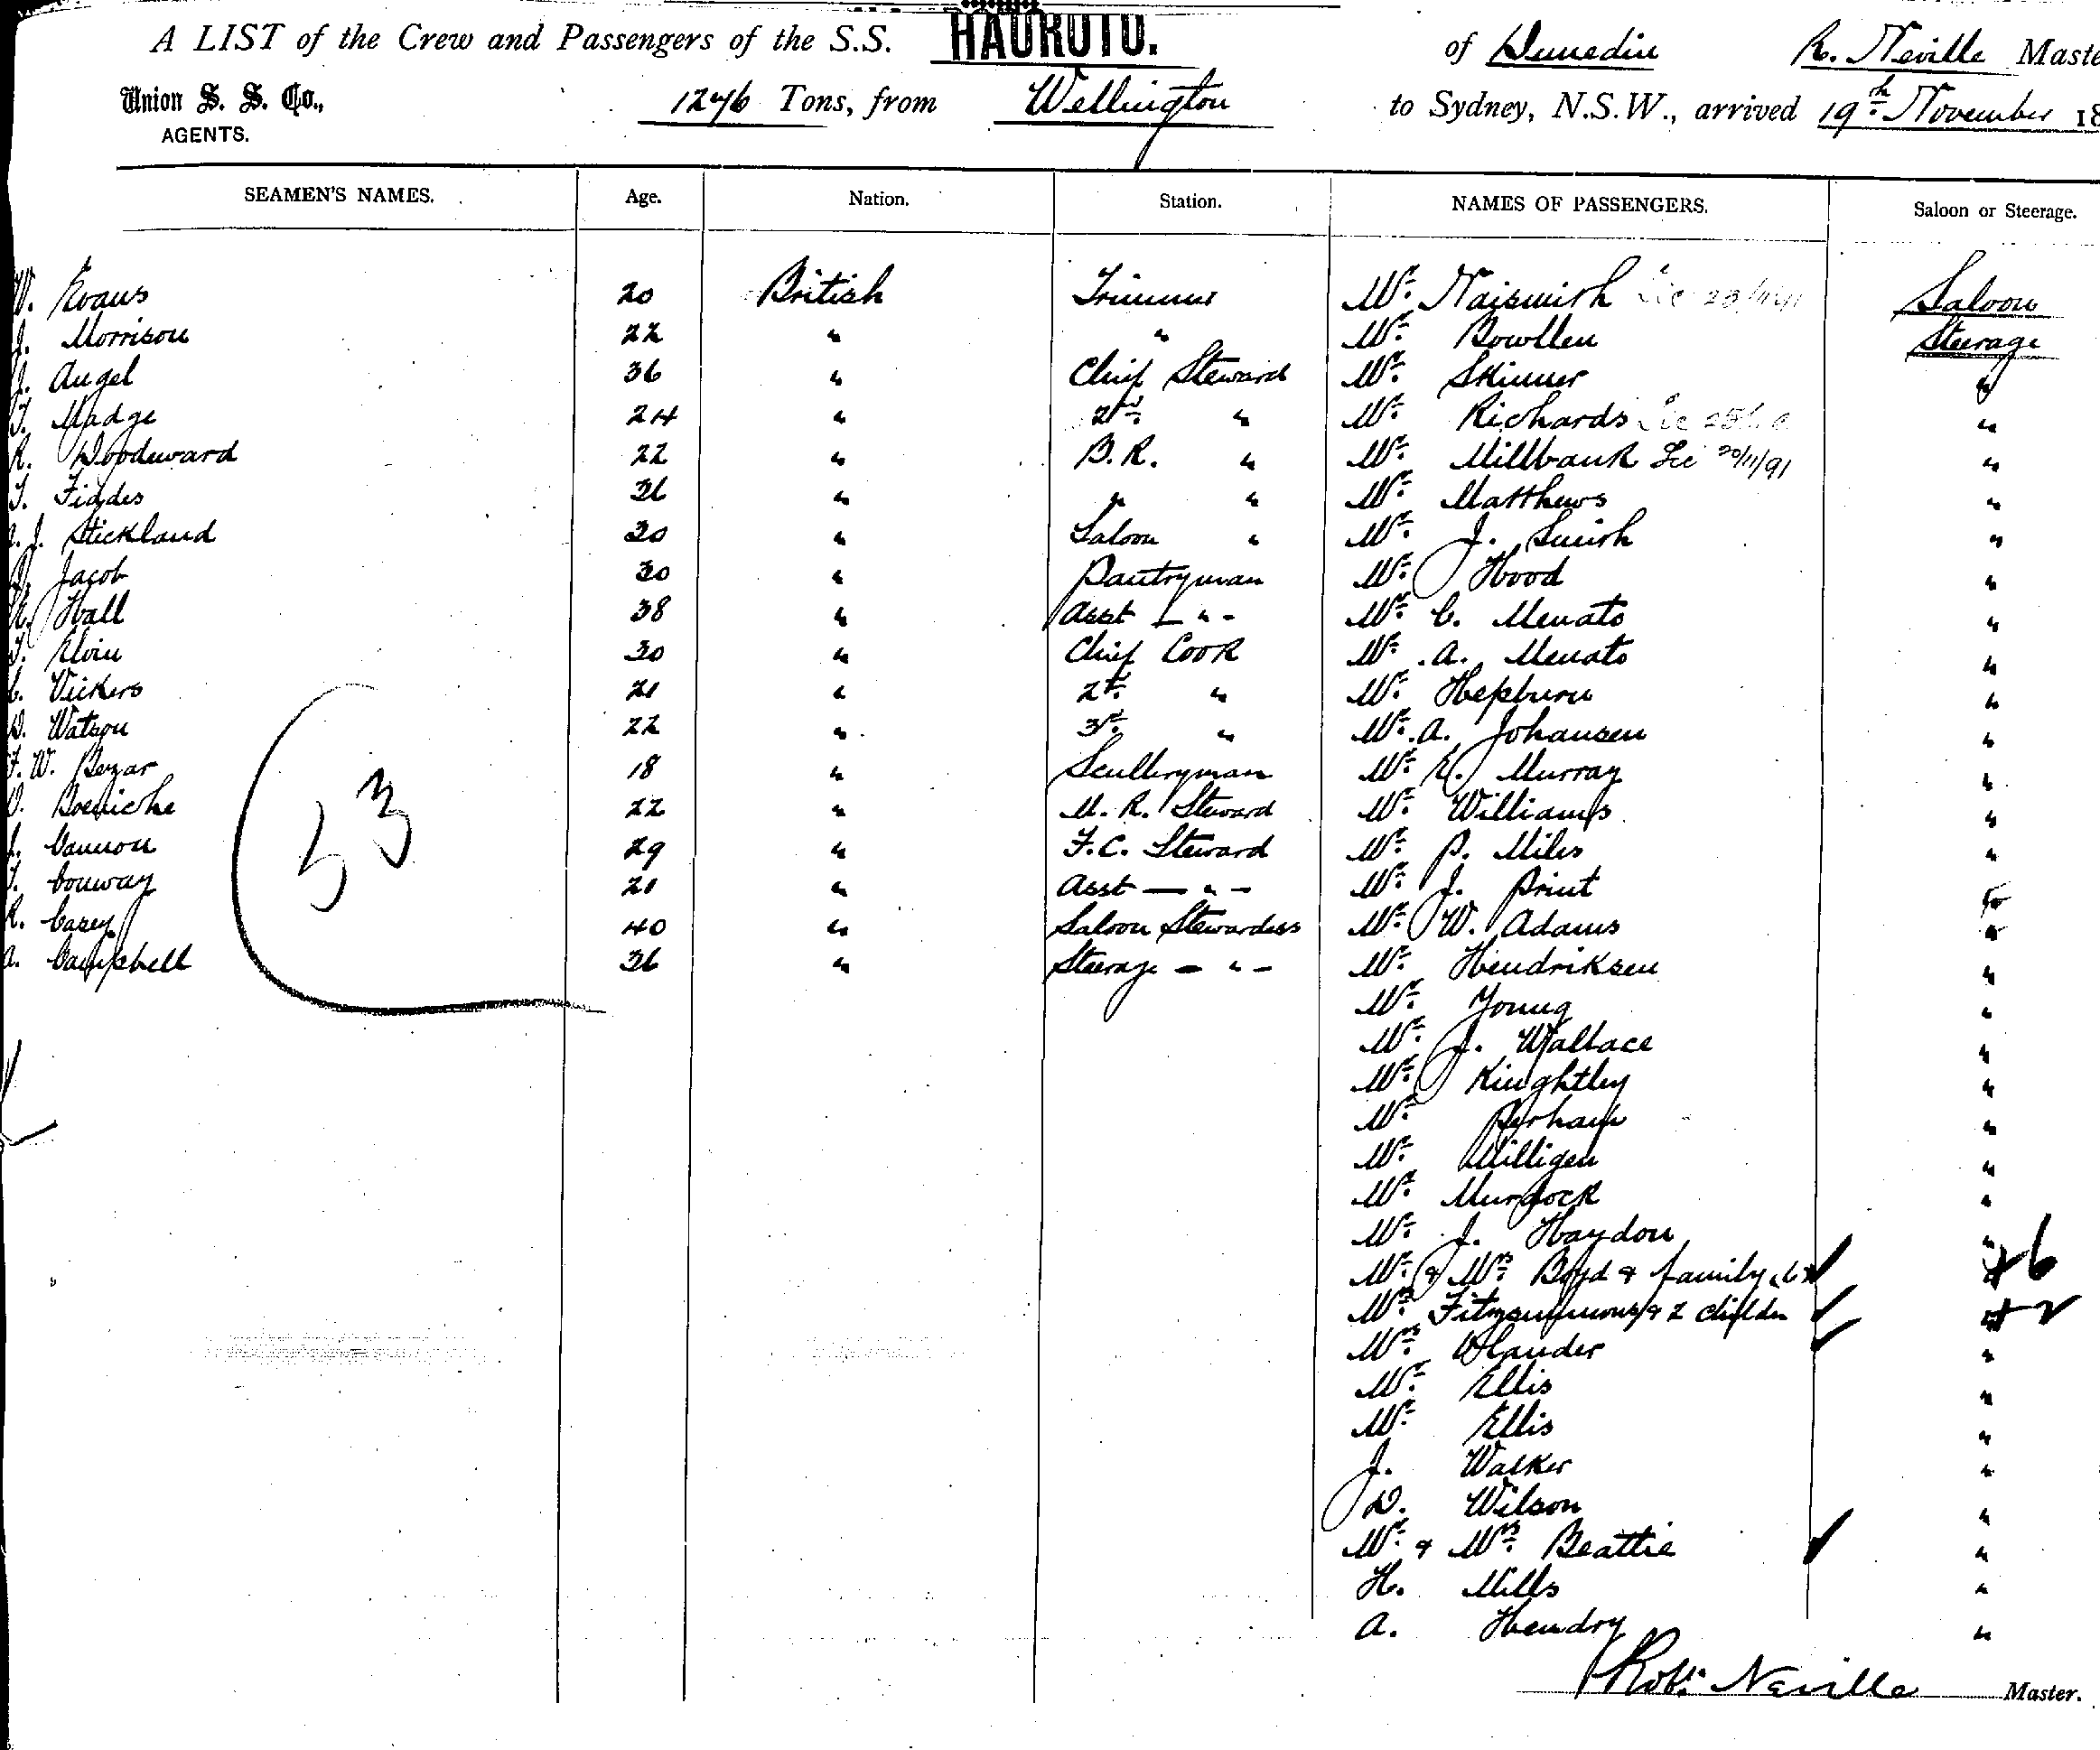 A LIST of the Crew and Passengers of the S.S. HAUROTO. of Dunedin R. Neville Maste
Union S. S. Co., 1276 Tons, from Wellington to Sydney, N.S.W., arrived 19th November 18
AGENTS.
SEAMEN'S NAMES. Age. Nation. Station. NAMES OF PASSENGERS. Saloon or Steerage.
W. Evans 20 British Trimmer Mr. Naismith Lic Saloon
J. Morrison 22 " " Mr. Bowllen Steerage
J. Angel 36 " Chief Steward Mr. Skinner "
T. Madge 24 " 2nd. " Mr. Richards Lic "
R. Woodward 22 " B.R. " Mr. Millbank Lic 20/11/91 "
T. Fiddes 36 " " " Mr. Matthews "
J. Stickland 30 " Saloon " Mr. J. Smith "
Jacob 30 " Pantryman Mr. Hood "
Hall 38 " Asst - " - Mr. C. Menato "
T. Elvin 30 " Chief Cook Mr. A. Menato "
C. Vickers 21 " 2nd. " Mr. Hepburn "
D. Watson 22 " 3rd. " Mr. A. Johansen "
F. W. Bezar 18 " Sculleryman Mr. E. Murray "
Boeniche 22 " M. R. Steward Mr. Williams "
Cannon 29 " F.C. Steward Mr. P. Miles "
T. Conway 21 " Asst - " - Mr. J. Print "
R. Casey 40 " Saloon Stewardess Mr. W. Adams "
A. Campbell 36 " Steerage - " - Mr. Hendriksen "
53
Mr. Young "
Mr. J. Wallace "
Mr. Kinghtley "
Mr. Perham "
Mr. Milligen "
Mr. Murdock "
Mr. J. Haydon "
Mr. & Mrs. Boyd & family (6) " +6
Mrs. Fitzsimmons & 2 childn " +2
Mrs. Olander "
Mr. Ellis "
Mr. Ellis "
J. Walker "
D. Wilson "
Mr. & Mrs. Beattie "
H. Mills "
A. Hendry "
Robt. Neville Master.